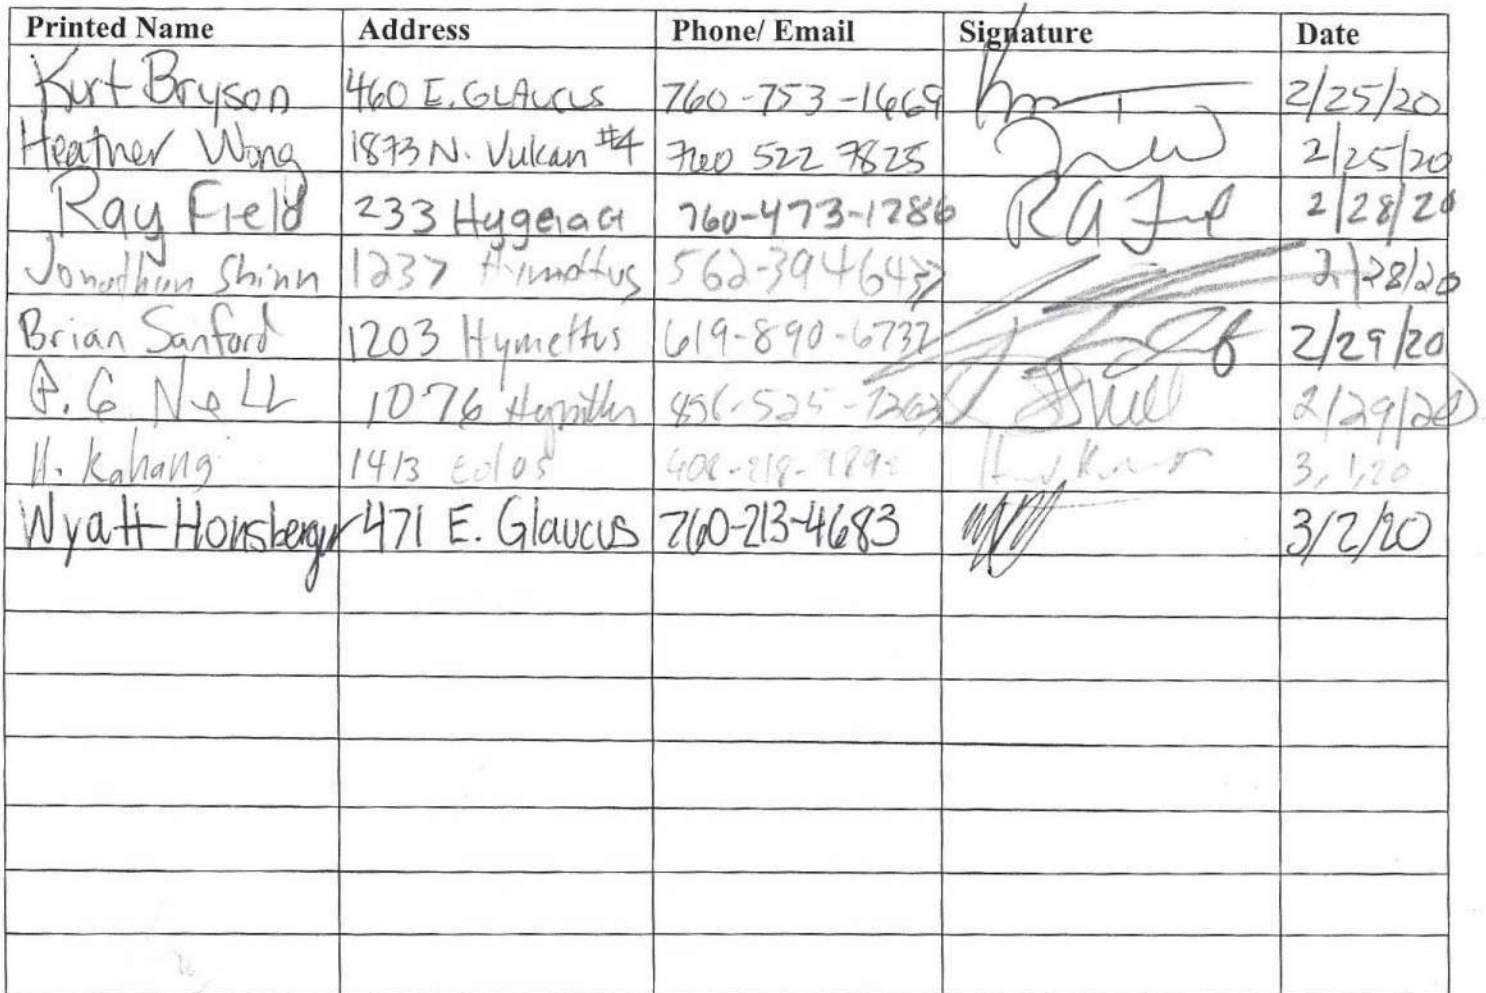 Printed Name Address Phone/ Email Signature Date
Kurt Bryson 460 E. GLAUCUS 760-753-1669 2/25/20
Heather Wong 1873 N. Vulcan #4 760 522 7825 2/25/20
Ray Field 233 Hygeia Ct 760-473-1286 2/28/20
Jonathan Shinn 1237 Hymettus 2/28/20
Brian Sanford 1203 Hymettus 619-890-6732 2/29/20
1076 2/29/20
H. Kahang 1413 Eolos 3,1,20
Wyatt Honsberger 471 E. Glaucus 760-213-4683 3/2/20